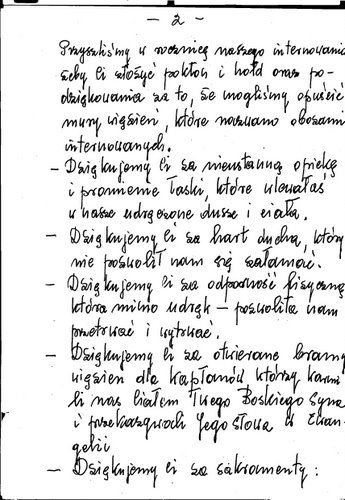 - 2 -
Przyszliśmy w rocznicę naszego internowania
żeby Ci złożyć pokłon i hołd oraz po-
dziękowania za to, że mogliśmy opuścić
mury więzień, które nazwano obozami
internowanych.
- Dziękujemy Ci za nieustanną opiekę
i promienie łaski, które wlewałaś
w nasze udręczone dusze i ciała.
- Dziękujemy Ci za hart ducha, który
nie pozwolił nam się załamać.
- Dziękujemy Ci za odporność fizyczną
która mimo udręk - pozwoliła nam
przetrwać i wytrwać.
- Dziękujemy Ci za otwierane bramy
więzień dla kapłanów którzy karmi
li nas Ciałem Twego Boskiego Syna
i przekazywali Jego Słowa w Ewan-
gelii
- Dziękujemy Ci za sakramenty: